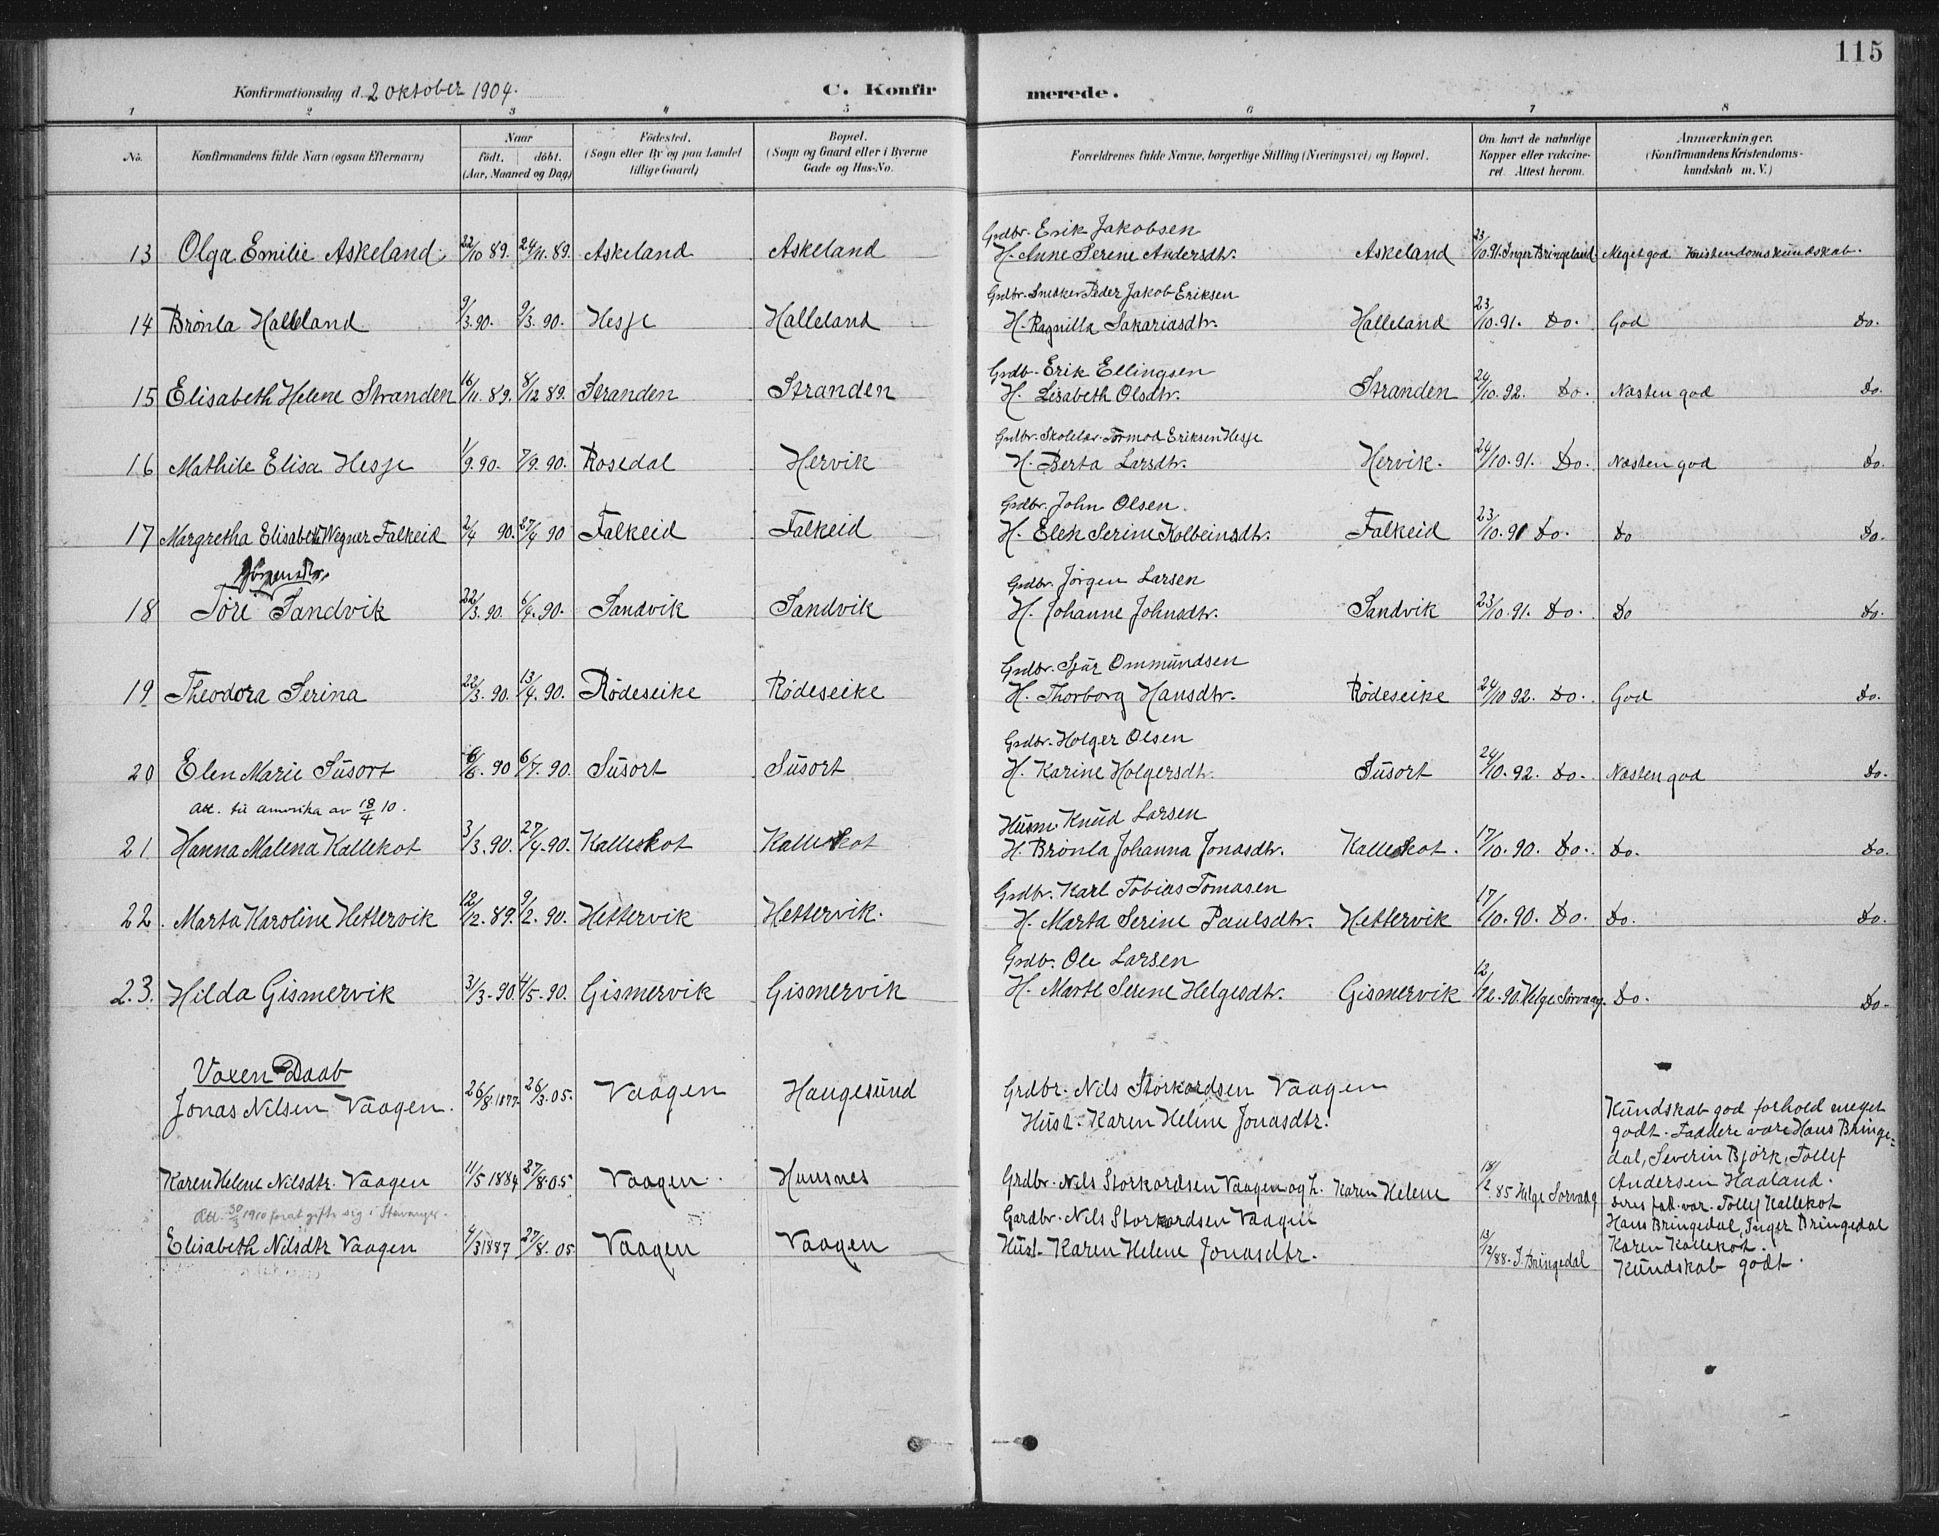 115
Konfirmationsdag d. 2 oktober 1904.
C. Konfirmerede.
1 2 3 4 5 6 7 8
No. Konfirmandens fulde Navn (ogsaa Efternavn) Naar födt. döbt. (Aar, Maaned og Dag) Födested. (Sogn eller By og paa Landet tillige Gaard) Bopæl. (Sogn og Gaard eller i Byerne Gade og Hus-No. Forældrenes fulde Navne, borgerlige Stilling (Næringsvei) og Bopæl. Om havt de naturlige Kopper eller vakcineret. Attest herom. Anmærkninger. (Konfirmandens Kristendomskundskab m. V.)
Grdbr. Erik Jakobsen
13 Olga Emilie Askeland 22/10 89. 24/11. 89. Askeland Askeland H. Anne Serene Andersdtr. Askeland 23/10. 91. Inger Bringeland. Meget god Kristendomskundskab.
Grdbr. Snedker Peder Jakob Eriksen
14 Brønla Halleland 9/3. 90. 9/3. 90. Hesje Halleland H. Ragnilla Sakariasdtr. Halleland 23/10. 91. Do. God Do.
Grdb. Erik Ellingsen
15 Elisabeth Helene Stranden 16/11. 89. 8/12 89. Stranden Stranden H. Lisabeth Olsdtr. Stranden 24/10. 92. Do. Næsten god Do.
Grdbr. Skolelær. Tormod Eriksen Hesje
16 Mathile Elisa Hesje 1/9. 90. 7/9. 90. Rosedal Hervik H. Berta Larsdtr. Hervik. 24/10. 91. Do. Næsten god Do.
Grdbr. John Olsen.
17 Margretha Elisabeth Wegner Falkeid 2/4 90. 27/4 90 Falkeid Falkeid H. Elen Serine Kolbeinsdtr. Falkeid 23/10. 91 Do. Do Do.
Jörgensdtr. Grdbr. Jørgen Larsen
18 Tore Sandvik 22/3. 90. 6/4. 90. Sandvik Sandvik H. Johanne Johnsdtr. Sandvik 23/10. 91. Do. Do Do.
Grdbr. Sjur Ommundsen
19 Theodora Serina 22/3. 90. 13/4. 90. Rödeseike Rödeseike H. Thorborg Hansdtr. Rödeseike 24/10 92. Do. God Do.
Grdbr. Holger Olsen
20 Elen Marie Susort 6/6. 90 6/7. 90. Susort Susort H. Karine Holgersdtr. Susort 24/10. 92. Do. Næsten god Do.
Att. til Amerika av 18/4 10.
Husm. Knud Larsen
21 Hanna Malena Kallekot 3/3. 90. 27/4. 90. Kallekot Kallekot H. Brønla Johanna Jonasdtr. Kallekot. 17/10. 90. Do. Do. Do.
Grdbr. Karl Tobias Tomasen
22. Marta Karoline Hettervik 12/12. 89. 9/2. 90. Hettervik Hettervik. H. Marta Serine Paulsdtr. Hettervik 17/10. 90. Do. Do. Do.
Grdb. Ole Larsen
23. Hilda Gismervik 3/3. 90. 4/5. 90. Gismervik Gismervik H. Marte Serene Helgesdtr. Gismervik 12/12. 90. Helge Sorvaag. Do. Do.
Voxen Daab
Jonas Nilsen Vaagen. 26/8. 1877. 26/3. 05. Vaagen Haugesund Grdbr. Nils Storkordsen Vaagen
Hust. Karen Helene Jonasdtr.
Kundskab god forhold meget
godt. Faddere vare Hans Bringe-
dal, Severin Bjórk, Tollef
Andersen Haaland.
Karen Helene Nilsdtr. Vaagen 11/5 1884 27/8. 05. Vaagen. Huusnes Grdbr. Nils Storkordsen Vaagen og h. Karen Helene 18/2. 85 Helge Sorvaag
Att. 30/3 1910 forat gifte sig i Stavanger.
Gardbr. Nils Storkordsen Vaagen
Elisabeth Nilsdtr Vaagen 4/3 1887 27/8. 05 Vaagen Vaagen Hust. Karen Helene Jonasdtr. 13/12/88. I. Bringedal
fad. var. Tollef Kallekot
Hans Bringedal, Inger Bringedal
Karen Kallekot.
Kundskab godt.